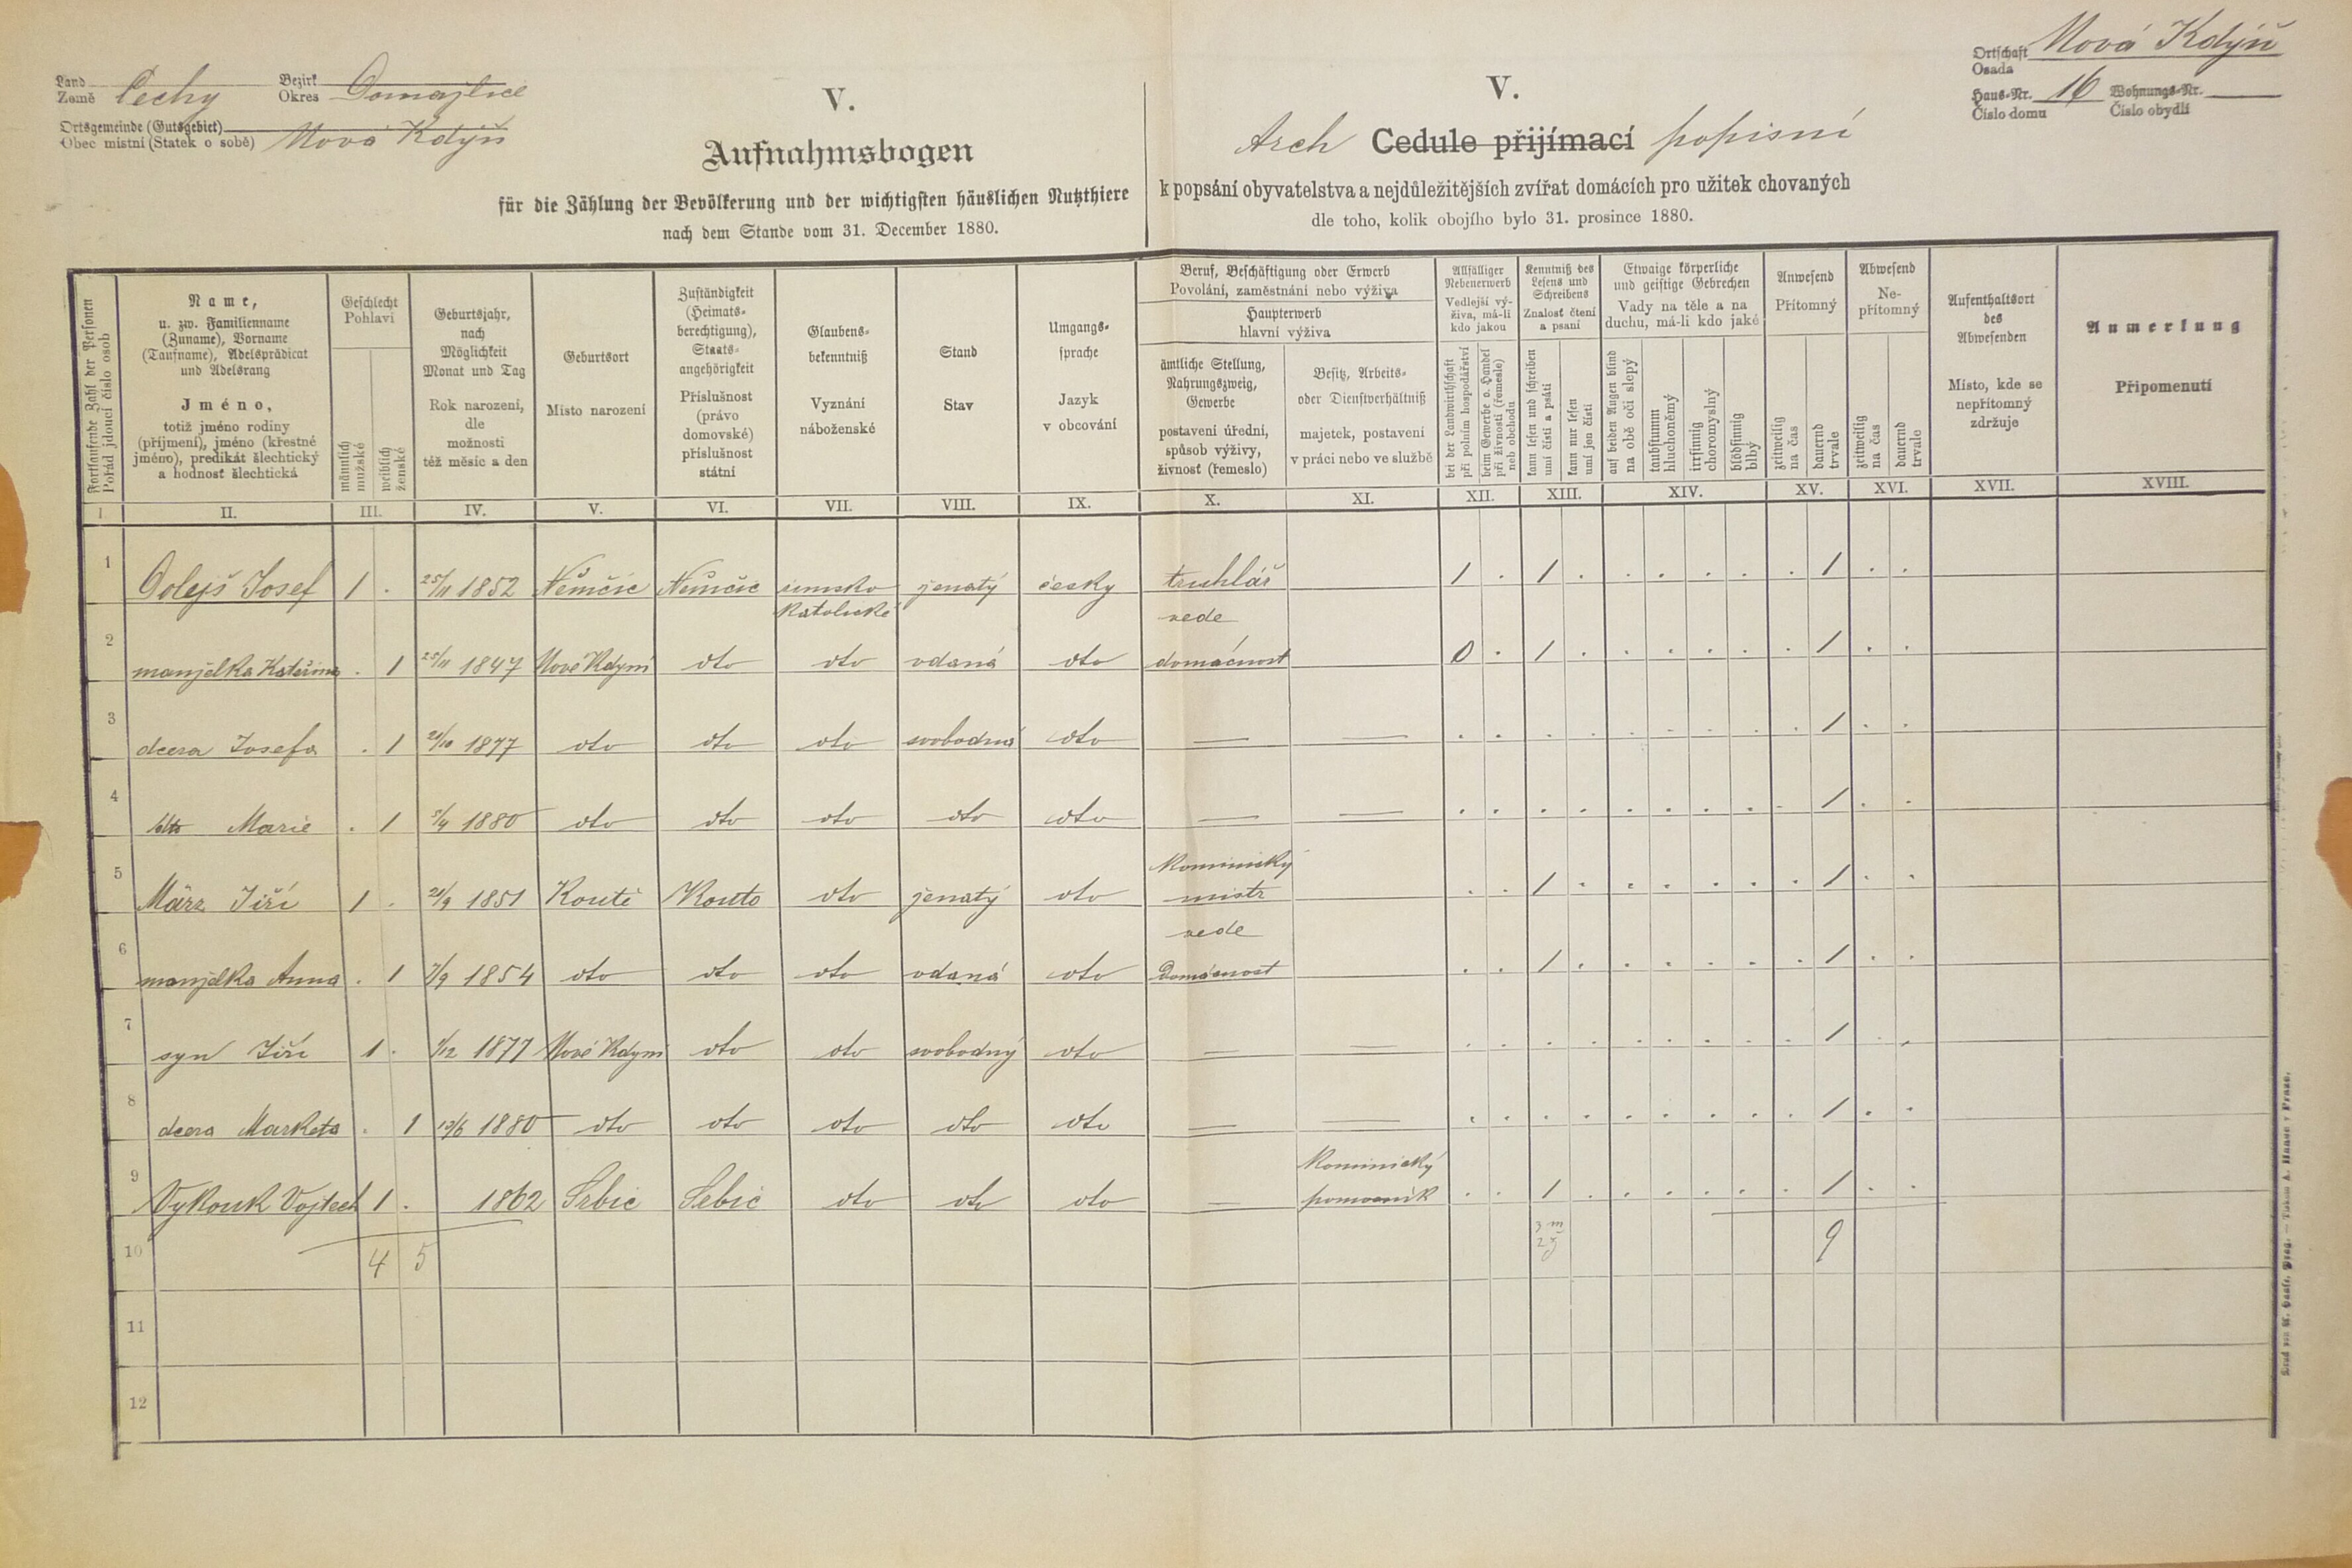 Land
Země Čechy
Bezirk
Okres Domažlice
Ortsgemeinde (Gutsgebiet)
Obec místní (Statek o sobě) Nová Kdýň
V.
Aufnahmsbogen
für die Zählung der Bevölkerung und der wichtigsten häuslichen Nutzthiere
nach dem Stande vom 31. December 1880.
V.
Arch Cedule přijímací popisní
k popsání obyvatelstva a nejdůležitějších zvířat domácích pro užitek chovaných
dle toho, kolik obojího bylo 31. prosince 1880.
Ortschaft
Osada Nová Kdýň
Haus-Nr.
Číslo domu 16
Wohnungs-Nr.
Číslo obydlí
Fortlaufende Zahl der Personen
Pořád jdoucí číslo osob
Name,
u. zw. Familienname
(Zuname), Vorname
(Taufname), Adelsprädicat
und Adelsrang
Jméno,
totiž jméno rodiny
(příjmení), jméno (křestné
jméno), predikát šlechtický
a hodnosť šlechtická
Geschlecht
Pohlaví
männlich
mužské
weiblich
ženské
Geburtsjahr,
nach
Möglichkeit
Monat und Tag
Rok narození,
dle
možnosti
též měsíc a den
Geburtsort
Místo narození
Zuständigkeit
(Heimats-
berechtigung),
Staats-
angehörigkeit
Příslušnost
(právo
domovské)
příslušnost
státní
Glaubens-
bekenntniß
Vyznání
náboženské
Stand
Stav
Umgangs-
sprache
Jazyk
v obcování
Beruf, Beschäftigung oder Erwerb
Povolání, zaměstnání nebo výživa
Haupterwerb
hlavní výživa
ämtliche Stellung,
Nahrungszweig,
Gewerbe
postavení úřední,
spůsob výživy,
živnosť (řemeslo)
Besitz, Arbeits-
oder Dienstverhältniß
majetek, postavení
v práci nebo ve službě
Allfälliger
Nebenerwerb
Vedlejší vý-
živa, má-li
kdo jakou
bei der Landwirthschaft
při polním hospodářství
beim Gewerbe o. Handel
při živnosti (řemesle)
neb obchodu
Kenntniß des
Lesens und
Schreibens
Znalosť čtení
a psaní
kann lesen und schreiben
umí čísti a psáti
kann nur lesen
umí jen čísti
Etwaige körperliche
und geistige Gebrechen
Vady na těle a na
duchu, má-li kdo jaké
auf beiden Augen blind
na obě oči slepý
taubstumm
hluchoněmý
irrsinnig
choromyslný
blödsinnig
blbý
Anwesend
Přítomný
zeitweilig
na čas
dauernd
trvale
Abwesend
Ne-
přítomný
zeitweilig
na čas
dauernd
trvale
Aufenthaltsort
des
Abwesenden
Místo, kde se
nepřítomný
zdržuje
Anmerkung
Připomenutí
I II. III. IV. V. VI. VII. VIII. IX. X. XI. XII. XIII. XIV. XV. XVI. XVII. XVIII.
1 Dolejš Josef 1 . 25/11 1852 Němčic Němčic římsko katolické ženatý česky truhlář 1 . 1 . . . . . . 1 . .
2 manželka Kateřina . 1 25/11 1847 Nové Kdyni dto dto vdaná dto vede domácnost 0 . 1 . . . . . . 1 . .
3 dcera Josefa . 1 21/10 1877 dto dto dto svobodná dto — — . . . . . . . . . 1 . .
4 dto Marie . 1 5/4 1880 dto dto dto dto dto — — . . . . . . . . . 1 . .
5 März Jiří 1 . 21/9 1851 Koutě Kouto dto ženatý dto kominický mistr . . 1 . . . . . . 1 . .
6 manželka Anna . 1 7/9 1854 dto dto dto vdaná dto vede domácnost . . 1 . . . . . . 1 . .
7 syn Jiří 1 . 1/12 1877 Nové Kdyni dto dto svobodný dto — — . . . . . . . . . 1 . .
8 dcera Marketa . 1 13/6 1880 dto dto dto dto dto — — . . . . . . . . . 1 . .
9 Vykouk Vojtech 1 . 1862 Srbic Srbic dto dto dto — kominický pomocník . . 1 . . . . . . 1 . .
10 4 5 3 m 2 ž 9
11
12